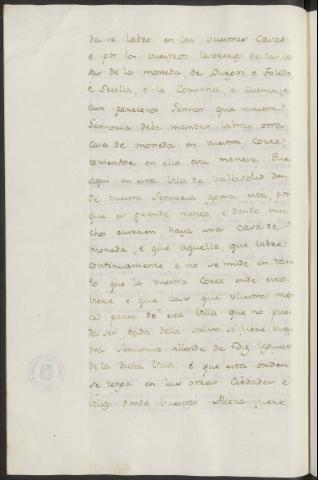 da se labre en las vuestras Casas
e por los vuestros tesoreros de las ca
sas de la moneda de Burgos, e Toledo,
e Sevilla, e la Corunna, e Cuenca, e
aun parecenos Sennor que vuestra
Sennoria debe mandar labrar otra
Casa de moneda en vuestra Corte
teniendose en ello esta manera. Que
aqui en esta Villa de Valladolid don
de vuestra Sennoria agora esta, por
que es grande meneo, e donde mu
chos ocurren haya una Casa de
moneda, e que aquella que labre
continuamente e no se mude en tan
to que la vuestra Corte ende esto
viere e que caso que vuestra mer
ced parta de esta Villa que no pue
da ser dada della salvo si fuere vues
tra Sennoria allende de Diez leguas
de la dicha Villa. E que esta orden
se tenga en las otras Ciodades, e
Villas donde vuestra Alteza fuere